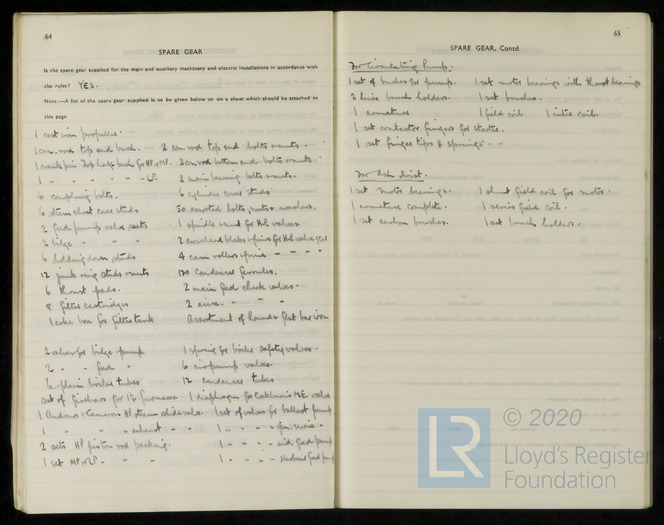 64
SPARE GEAR
Is the spare gear supplied for the main and auxiliary machinery and electric installations in accordance with
the rules? YES.
Note:—A list of the spare gear supplied is to be given below or on a sheet which should be attached to
this page
1 cast iron propeller.
1 con. rod top end bush. 2 con rod top end bolts & nuts.
1 crank pin top half bush for HP & MP. 2 con rod bottom end bolts & nuts.
1 - - - - - LP. 2 main bearing bolts & nuts.
6 coupling bolts. 6 cylinder cover studs
6 steam chest cover studs 50 assorted bolts, nuts & washers.
2 feed pump valve seats 1 spindle & nut for HP valve.
2 bilge " " "
6 holding down studs 4 cam rollers & pins
12 junk ring studs & nuts 100 condenser ferrules.
6 thrust pads. 2 main feed check valves.
8 filter cartridges 2 aux. " "
1 coke box for filter tank Assortment of round & flat bar iron
2 valves for bilge pump 1 spring for boiler safety valves.
2 " " feed " 6 air pump valves.
6 plain boiler tubes 12 condenser tubes
Set of firebars for 1½ furnaces 1 diaphragm for Cockburn's M.E. valve
1 Andrews & Cameron HP steam slide valve 1 set of valves for ballast pump
1 " " " exhaust " " 1 " " " " gen. service "
2 sets HP piston rod packing. 1 " " " " aux. feed pump
1 set MP & LP " " " 1 " " " " feed pump
65
SPARE GEAR, Contd.
For Circulating Pump.
1 set of bushes for pump. 1 set motor bearings with thrust bearings
2 brush holders. 1 set brushes.
1 armature 1 field coil 1 inter coil.
1 set contactor fingers for starter.
1 set finger tips & springs " "
For Ash Hoist.
1 set motor bearings. 1 shunt field coil for motor.
1 armature complete. 1 series field coil.
1 set carbon brushes. 1 set brush holders.
LR
© 2020
Lloyd's Register
Foundation